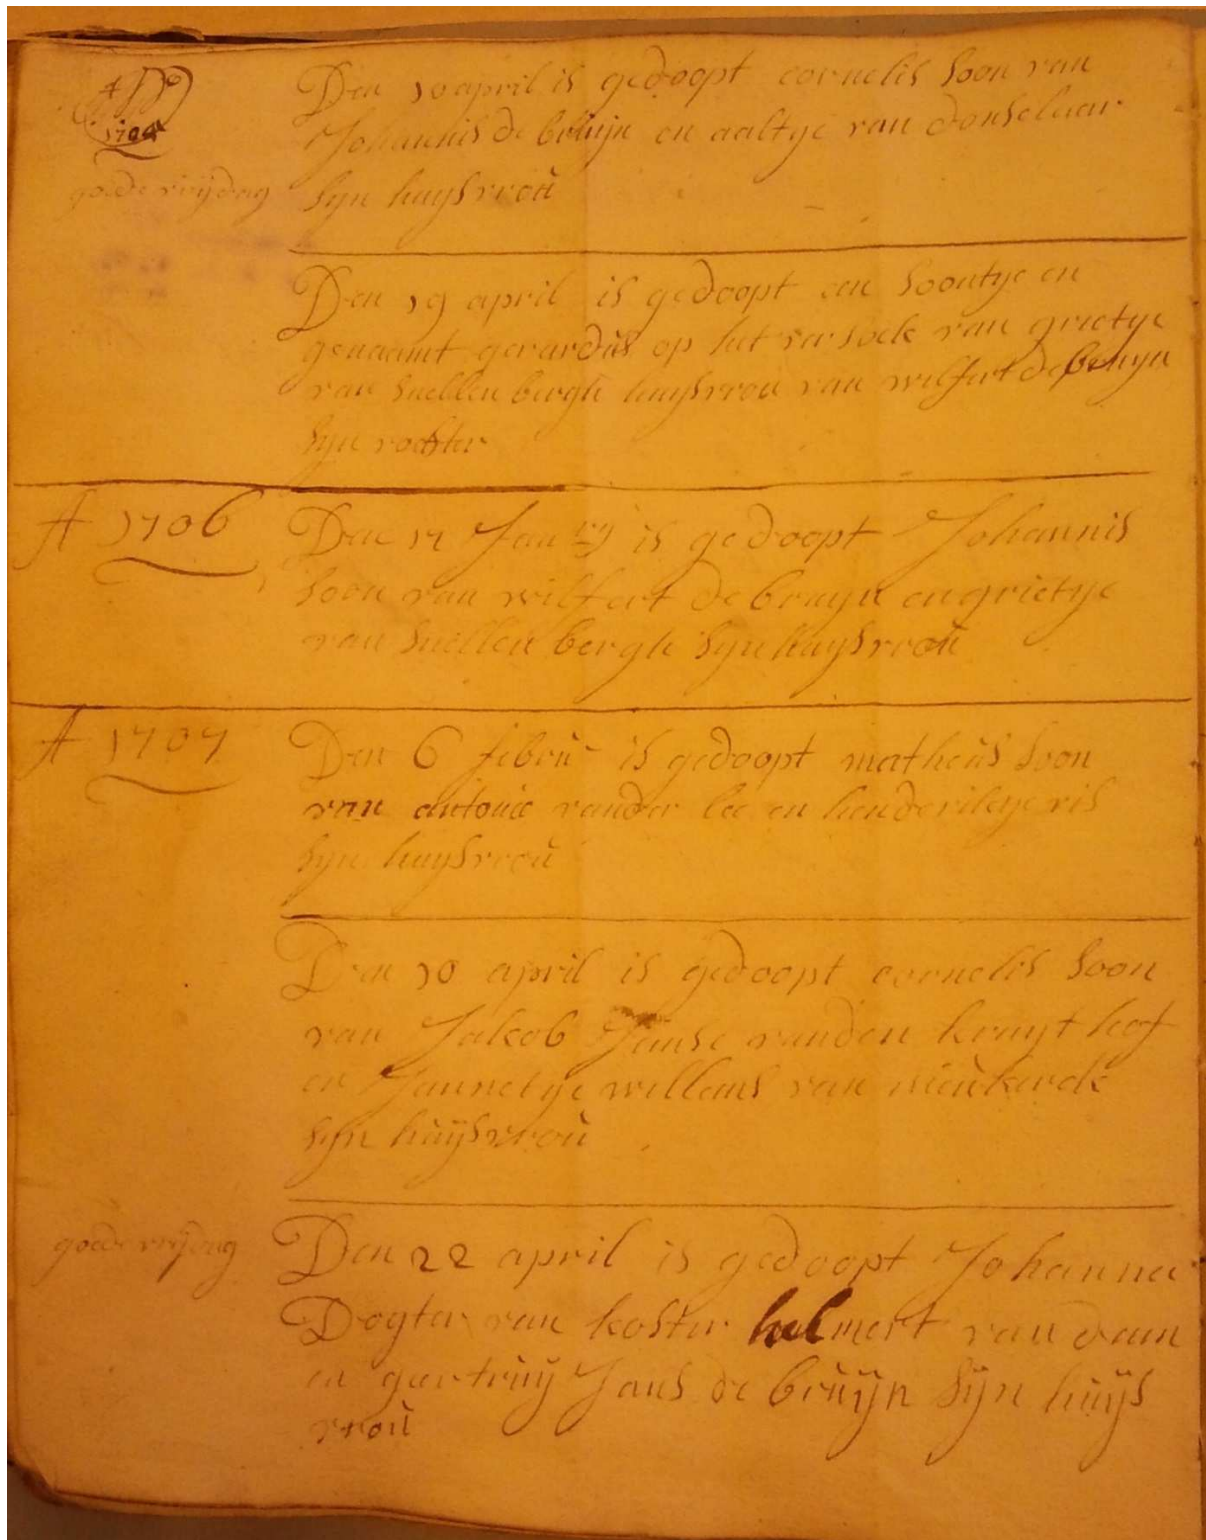 Ao
1704
Den 10 april is gedoopt cornelis soon van
Johannis de bruijn en aaltye van donselaar
goede vrijdag
syn huysvrou
Den 19 april is gedoopt een soontye en
genaamt gerardus op het versoek van grietye
van snellen bergh huysvrou van wilfert de bruyn
syn
A 1706
Den 17 Jan ry is gedoopt Johannis
soon van wilfert de bruyn en grietye
van snellen bergh syn huysvrou
A 1707
Den 6 febru is gedoopt matheus soon
van antonie vander lee en henderikye ris
syn huysvrou
Den 10 april is gedoopt cornelis soon
van Jakob Janse vanden kruyt hof
en Jannetye willems van nieukerck
syn huijsvrou
goede vrijdag
Den 22 april is gedoopt Johanna
Dogter van koster helmert van dam
en geertruij Jans de bruijn sijn huijs
vrou